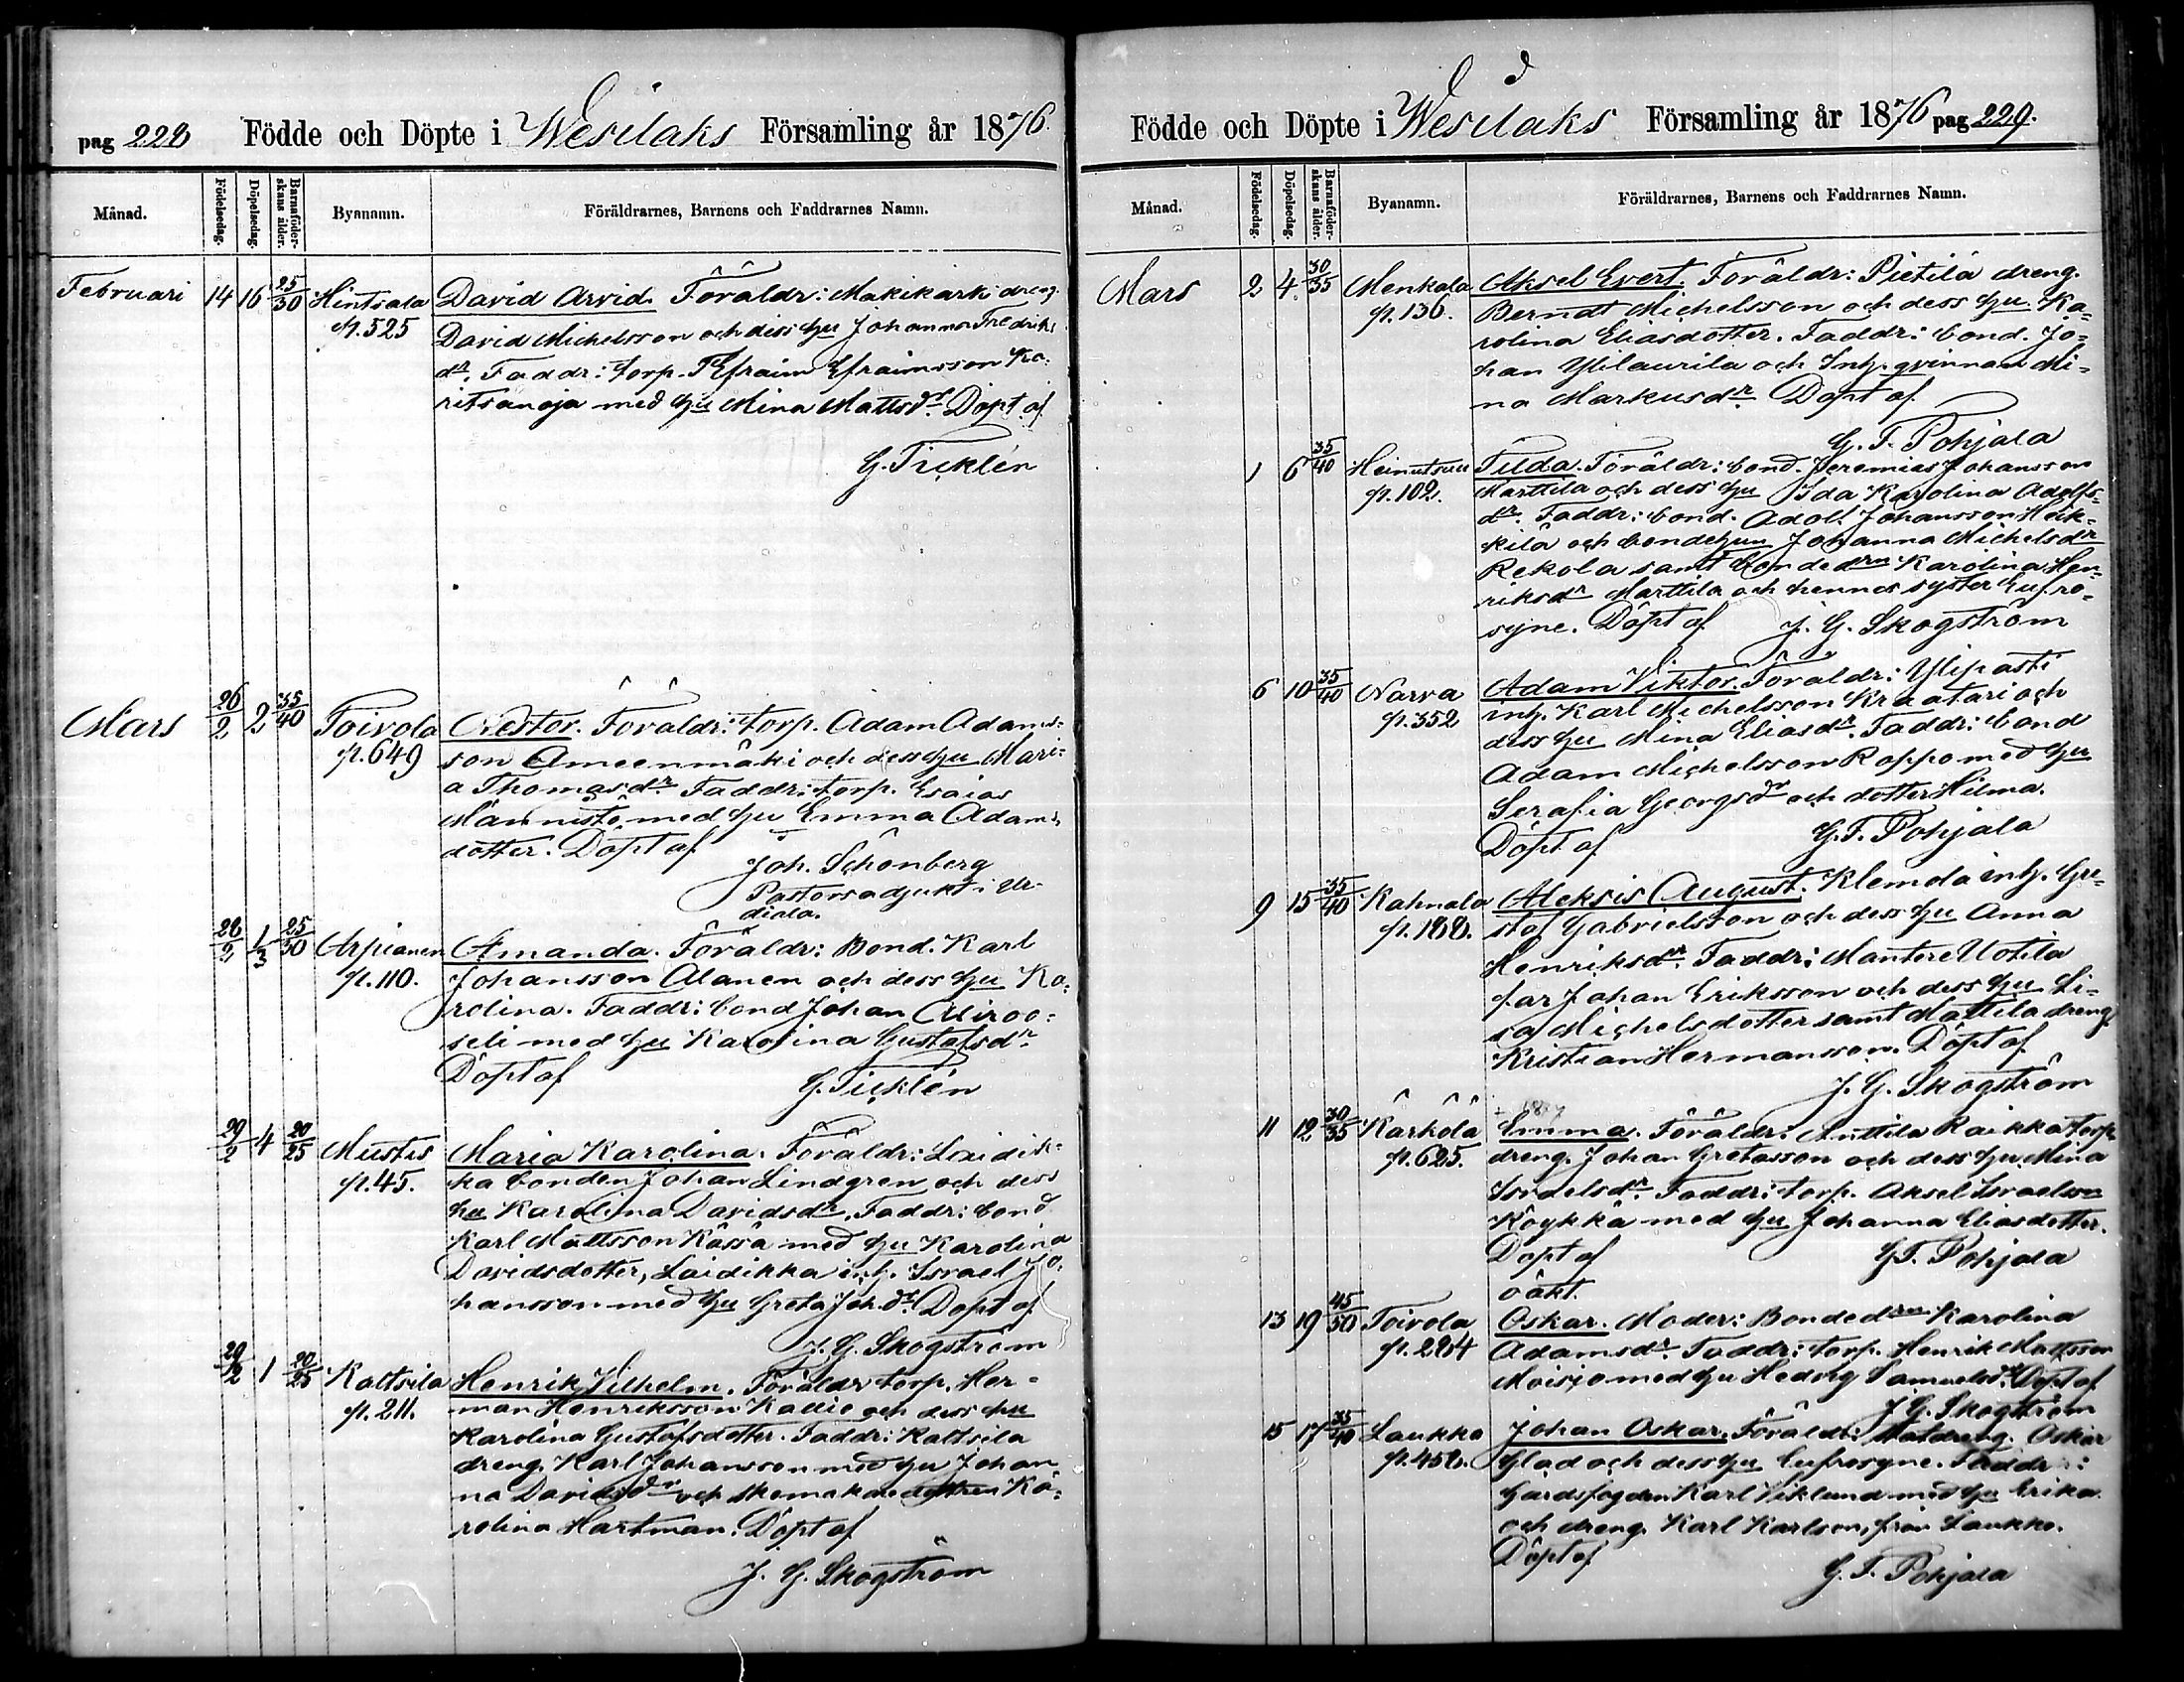 pag 228 Födde och Döpte i Wesilaks Församling år 1876.
Månad. Födelsedag. Döpelsedag. Barnaföderskans ålder. Byanamn. Föräldrarnes, Barnens och Faddrarnes Namn.
Februari 14 16 25/30 Hintsala David Arvid. Föräldr: Mäkikärki dreng.
p. 525 David Michelsson och dess hu Johanna Fredriks
dr. Faddr: torp. Efraim Efraimsson Ko-
ritsanoja med hu Mina Mattsdr. Döpt af
G. Ticklén
Mars 26/2 2 35/40 Toivola Nestor. Föräldr: torp. Adam Adams-
p. 649 son Ameenmäki och dess hu Mari-
a Thomasdr. Faddr: torp. Esaias
Männistö med hu Emma Adams
dotter. Döpt af
Joh. Schönberg
Pastorsadjunkt i Ur-
diala.
28/2 1/3 25/30 Arpianen Amanda. Föräldr: Bond. Karl
p. 110. Johansson Alanen och dess hu Ka-
rolina. Faddr: bond Johan Aliroo-
seli med hu Karolina Gustafsdr.
Döpt af
G. Ticklén
29/2 4 20/25 Mustis Maria Karolina. Föräldr: Laidik-
p. 45. ka bonden Johan Lindgren och dess
hu Karolina Davidsdr. Faddr: bond
Karl Mattsson Kässä med hu Karolina
Davidsdotter, Laidikka inh. Israel Jo-
hansson med hu Greta Joh.dr. Döpt af
J. G. Skogström
29/2 1 20/25 Kaltsila Henrik Vilhelm. Föräldr torp. Her-
p. 211. man Henriksson Kallio och dess hu
Karolina Gustafsdotter. Faddr: Kaltsila
dreng. Karl Johansson med hu Johan
na Davidsdr och skomakare Ka-
rolina Hartman. Döpt af
J. G. Skogström
Födde och Döpte i Wesilaks Församling år 1876 pag 229.
Månad. Födelsedag. Döpelsedag. Barnaföderskans ålder. Byanamn. Föräldrarnes, Barnens och Faddrarnes Namn.
Mars 2 4 30/35 Menkala Aksel Evert. Föräldr: Pietilä dreng.
p. 136. Berndt Michelsson och dess hu Ka-
rolina Eliasdotter. Faddr: bond. Jo-
han Ylilaurila och Inh. qvinnan Mi-
na Markusdr. Döpt af
G. F. Pohjala
1 6 35/40 Heinutsuu Tilda. Föräldr: bond. Jeremias Johansson
p. 102. Marttila och dess hu Ida Karolina Adolfs-
dr. Faddr: bond. Adolf Johansson Heik-
kilä och bondehun Johanna Michelsdr
Rekola samt bondedrn Karolina Hen-
riksdr Marttila och hennes syster Eufro-
syne. Döpt af J. G. Skogström
6 10 35/40 Narva Adam Viktor. Föräldr: Ylipasti
p. 352 inh. Karl Michelsson Kraatari och
dess hu Mina Eliasdr. Faddr: bond
Adam Michelsson Roppo med hu
Serafia Georgsdr och dotter Hilma.
Döpt af G. F. Pohjala
9 15 35/40 Kahnala Aleksis August. Klemola inh. Gu-
p. 188. staf Gabrielsson och dess hu Anna
Henriksdr. Faddr: Mantere Uotila
far Johan Eriksson och dess hu Li-
sa Michelsdotter samt Mattila dreng.
Kristian Hermansson. Döpt af
J. G. Skogström
11 12 30/35 Kärkölä Emma. Föräldr: Anttila Raikka torp
p. 625. dreng. Johan Gretasson och dess hu Mina
Israelsdr. Faddr: torp. Aksel Israelsson
Köykkä med hu Johanna Eliasdotter.
Döpt af G. F. Pohjala
oäkt.
13 19 45/50 Toivola Oskar. Moder: Bondedrn Karolina
p. 284 Adamsdr. Faddr: torp. Henrik Mattsson
Moisio med hu Hedvig Samuelsdr. Döpt af
J. G. Skogström
15 17 35/40 Laukko Johan Oskar. Föräldr: Statdreng. Oskar
p. 458. Glad och dess hu Eufrosyne. Faddr:
Gårdsfogden Karl Viklund med hu Erika
och dreng. Karl Karlson, från Laukko.
Döpt af
G. F. Pohjala